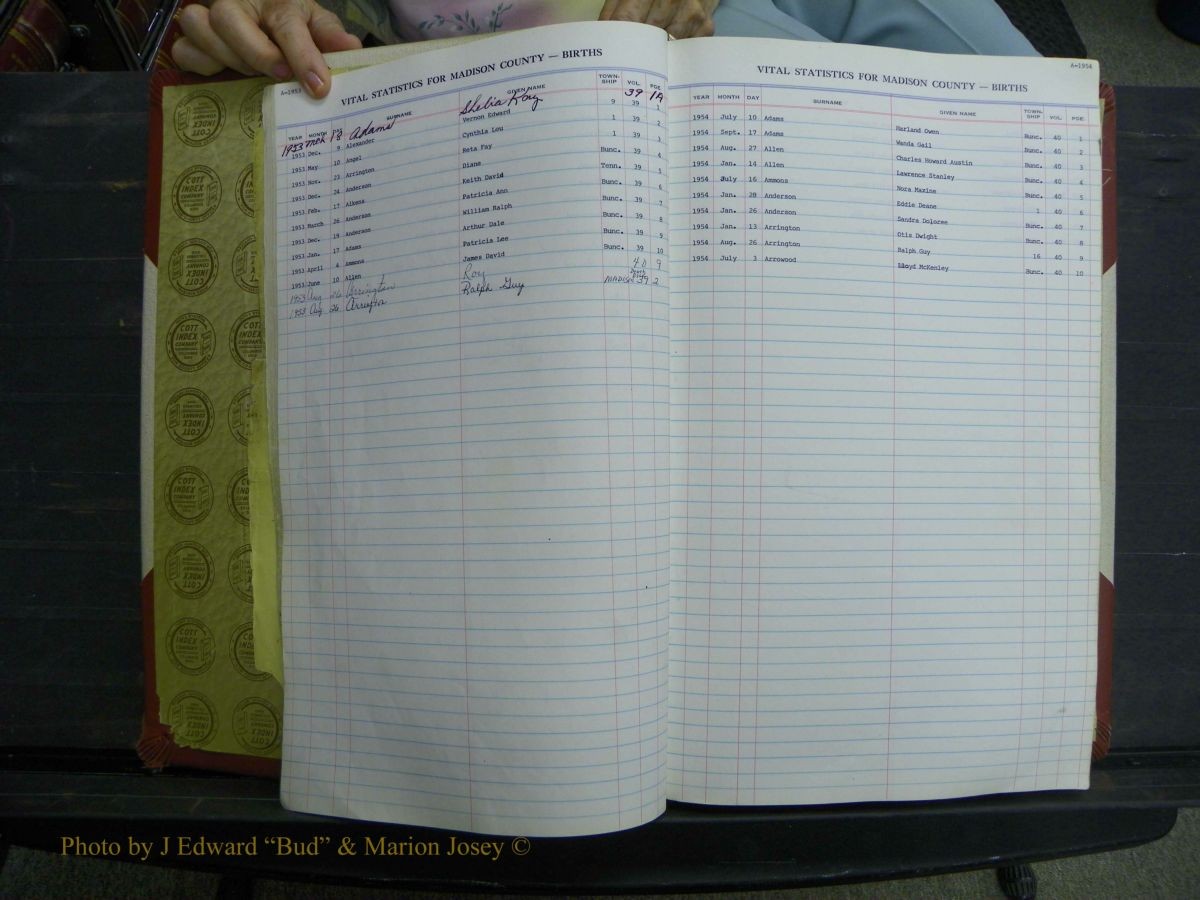 A-1953
VITAL STATISTICS FOR MADISON COUNTY — BIRTHS
YEAR MONTH DAY SURNAME GIVEN NAME TOWN-SHIP VOL. PGE
1953 Mch 18 Adams Shelia Kay 39 1A
1953 Dec. 9 Alexander Vernon Edward 9 39 1
1953 May 10 Angel Cynthia Lou 1 39 2
1953 Nov. 23 Arrington Reta Fay 1 39 3
1953 Dec. 24 Anderson Diane Bunc. 39 4
1953 Feb. 17 Aikens Keith David Tenn. 39 5
1953 March 26 Anderson Patricia Ann Bunc. 39 6
1953 Dec. 19 Anderson William Ralph Bunc. 39 7
1953 Jan. 17 Adams Arthur Dale Bunc. 39 8
1953 April 4 Ammons Patricia Lee Bunc. 39 9
1953 June 10 Allen James David Bunc. 39 10
1953 Aug 26 Arrington Roy 40 9
1953 Aug 26 Arrington Ralph Guy MADISON 39 2
A-1954
VITAL STATISTICS FOR MADISON COUNTY — BIRTHS
YEAR MONTH DAY SURNAME GIVEN NAME TOWN-SHIP VOL. PGE.
1954 July 10 Adams Harland Owen Bunc. 40 1
1954 Sept. 17 Adams Wanda Gail Bunc. 40 2
1954 Aug. 27 Allen Charles Howard Austin Bunc. 40 3
1954 Jan. 14 Allen Lawrence Stanley Bunc. 40 4
1954 July 16 Ammons Nora Maxine Bunc. 40 5
1954 Jan. 28 Anderson Eddie Deane 1 40 6
1954 Jan. 26 Anderson Sandra Doloree Bunc. 40 7
1954 Jan. 13 Arrington Otis Dwight Bunc. 40 8
1954 Aug. 26 Arrington Ralph Guy 16 40 9
1954 July 3 Arrowood Lloyd McKenley Bunc. 40 10
COTT INDEX COMPANY
Photo by J Edward “Bud” & Marion Josey ©